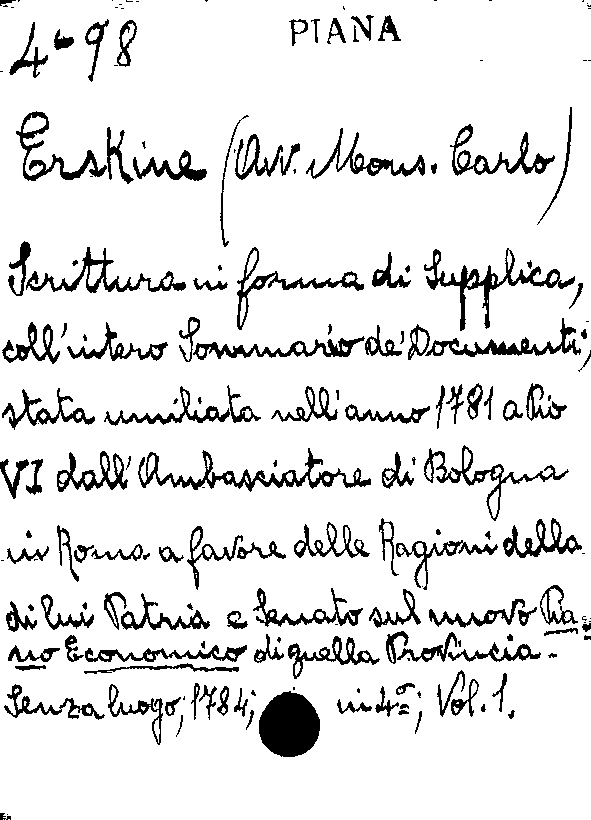 4-98
PIANA
Erskine (Avv. Mons. Carlo)
Scrittura in forma di Supplica,
coll'intero Sommario de' Documenti,
stata umiliata nell'anno 1781 a Pio
VI dall'Ambasciatore di Bologna
in Roma a favore delle Ragioni della
di lui Patria e Senato sul nuovo Pia=
no Economico di quella Provincia.
Senza luogo, 1784; in 4º; Vol. 1.